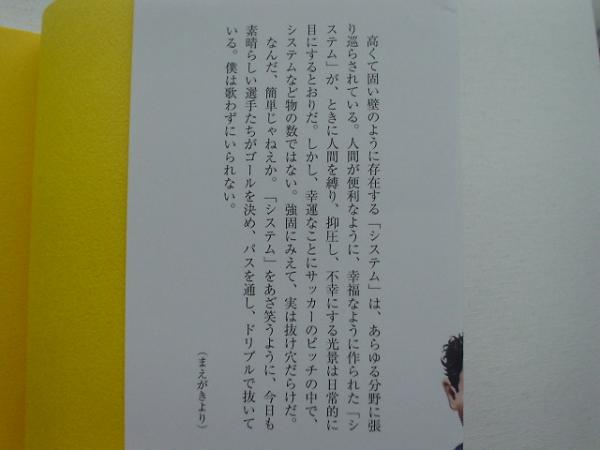 高くて固い壁のように存在する「システム」は、あらゆる分野に張
り巡らされている。人間が便利なように、幸福なように作られた「シ
ステム」が、ときに人間を縛り、抑圧し、不幸にする光景は日常的に
目にするとおりだ。しかし、幸運なことにサッカーのピッチの中で、
システムなど物の数ではない。強固にみえて、実は抜け穴だらけだ。
なんだ、簡単じゃねえか。「システム」をあざ笑うように、今日も
素晴らしい選手たちがゴールを決め、パスを通し、ドリブルで抜いて
いる。僕は歌わずにいられない。
（まえがきより）